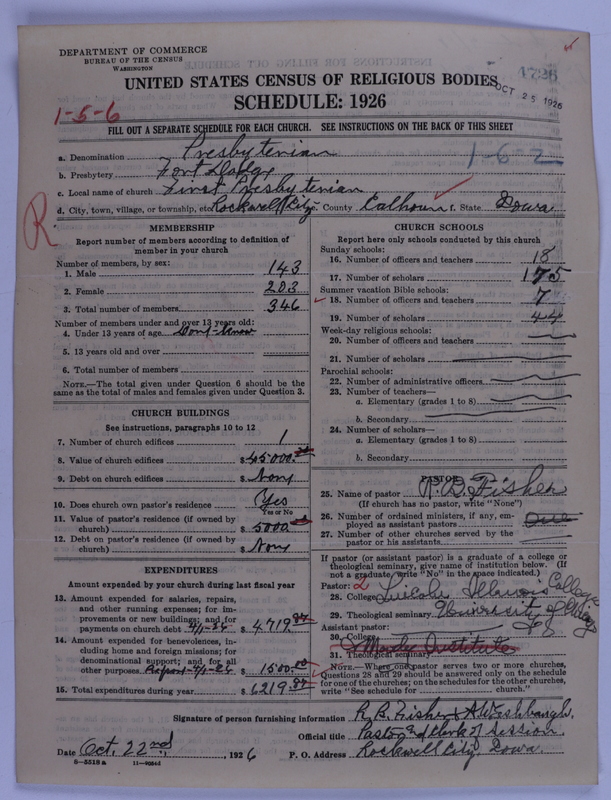 DEPARTMENT OF COMMERCE
BUREAU OF THE CENSUS
WASHINGTON
UNITED STATES CENSUS OF RELIGIOUS BODIES
4726
OCT 25 1926
SCHEDULE: 1926
1-5-6
FILL OUT A SEPARATE SCHEDULE FOR EACH CHURCH. SEE INSTRUCTIONS ON THE BACK OF THIS SHEET
a. Denomination Presbyterian
1-6-2
b. Presbytery Fort Dodge
c. Local name of church First Presbyterian
d. City, town, village, or township, etc. Rockwell City e. County Calhoun f. State Iowa
R
MEMBERSHIP
Report number of members according to definition of
member in your church
Number of members, by sex:
1. Male 143
2. Female 203
3. Total number of members 346
Number of members under and over 13 years old:
4. Under 13 years of age Don't Know
5. 13 years old and over
6. Total number of members
NOTE.—The total given under Question 6 should be the
same as the total of males and females given under Question 3.
CHURCH BUILDINGS
See instructions, paragraphs 10 to 12
7. Number of church edifices 1
8. Value of church edifices $45000.
9. Debt on church edifices $ None
10. Does church own pastor's residence Yes
Yes or No
11. Value of pastor's residence (if owned by
church) $ 5000
12. Debt on pastor's residence (if owned by
church) $ None
EXPENDITURES
Amount expended by your church during last fiscal year
13. Amount expended for salaries, repairs,
and other running expenses; for im-
provements or new buildings; and for
payments on church debt $ 4719
14. Amount expended for benevolences, in-
cluding home and foreign missions; for
denominational support; and for all
other purposes $ 1500.00
15. Total expenditures during year $ 6219
CHURCH SCHOOLS
Report here only schools conducted by this church
Sunday schools:
16. Number of officers and teachers 18
17. Number of scholars 175
Summer vacation Bible schools:
18. Number of officers and teachers 7
19. Number of scholars 44
Week-day religious schools:
20. Number of officers and teachers
21. Number of scholars
Parochial schools:
22. Number of administrative officers
23. Number of teachers—
a. Elementary (grades 1 to 8)
b. Secondary
24. Number of scholars—
a. Elementary (grades 1 to 8)
b. Secondary
PASTOR
25. Name of pastor R. B. Fisher
(If church has no pastor, write "None")
26. Number of ordained ministers, if any, em-
ployed as assistant pastors
27. Number of other churches served by the
pastor or his assistants
If pastor (or assistant pastor) is a graduate of a college or
theological seminary, give name of institution below. (If
not a graduate, write "No" in the space indicated.)
Pastor: 2
28. College Lincoln Illinois College
29. Theological seminary University of Chicago
Assistant pastor:
30. College
31. Theological seminary Moody Institute
NOTE.—Where one pastor serves two or more churches,
Questions 28 and 29 should be answered only on the schedule
for one of the churches; on the schedules for the other churches,
write "See schedule for church."
Signature of person furnishing information R. B. Fisher &
Official title Pastor and Clerk of Session.
Date Oct. 22nd 1926 P. O. Address Rockwell City, Iowa.
8—5518a 11—9084d